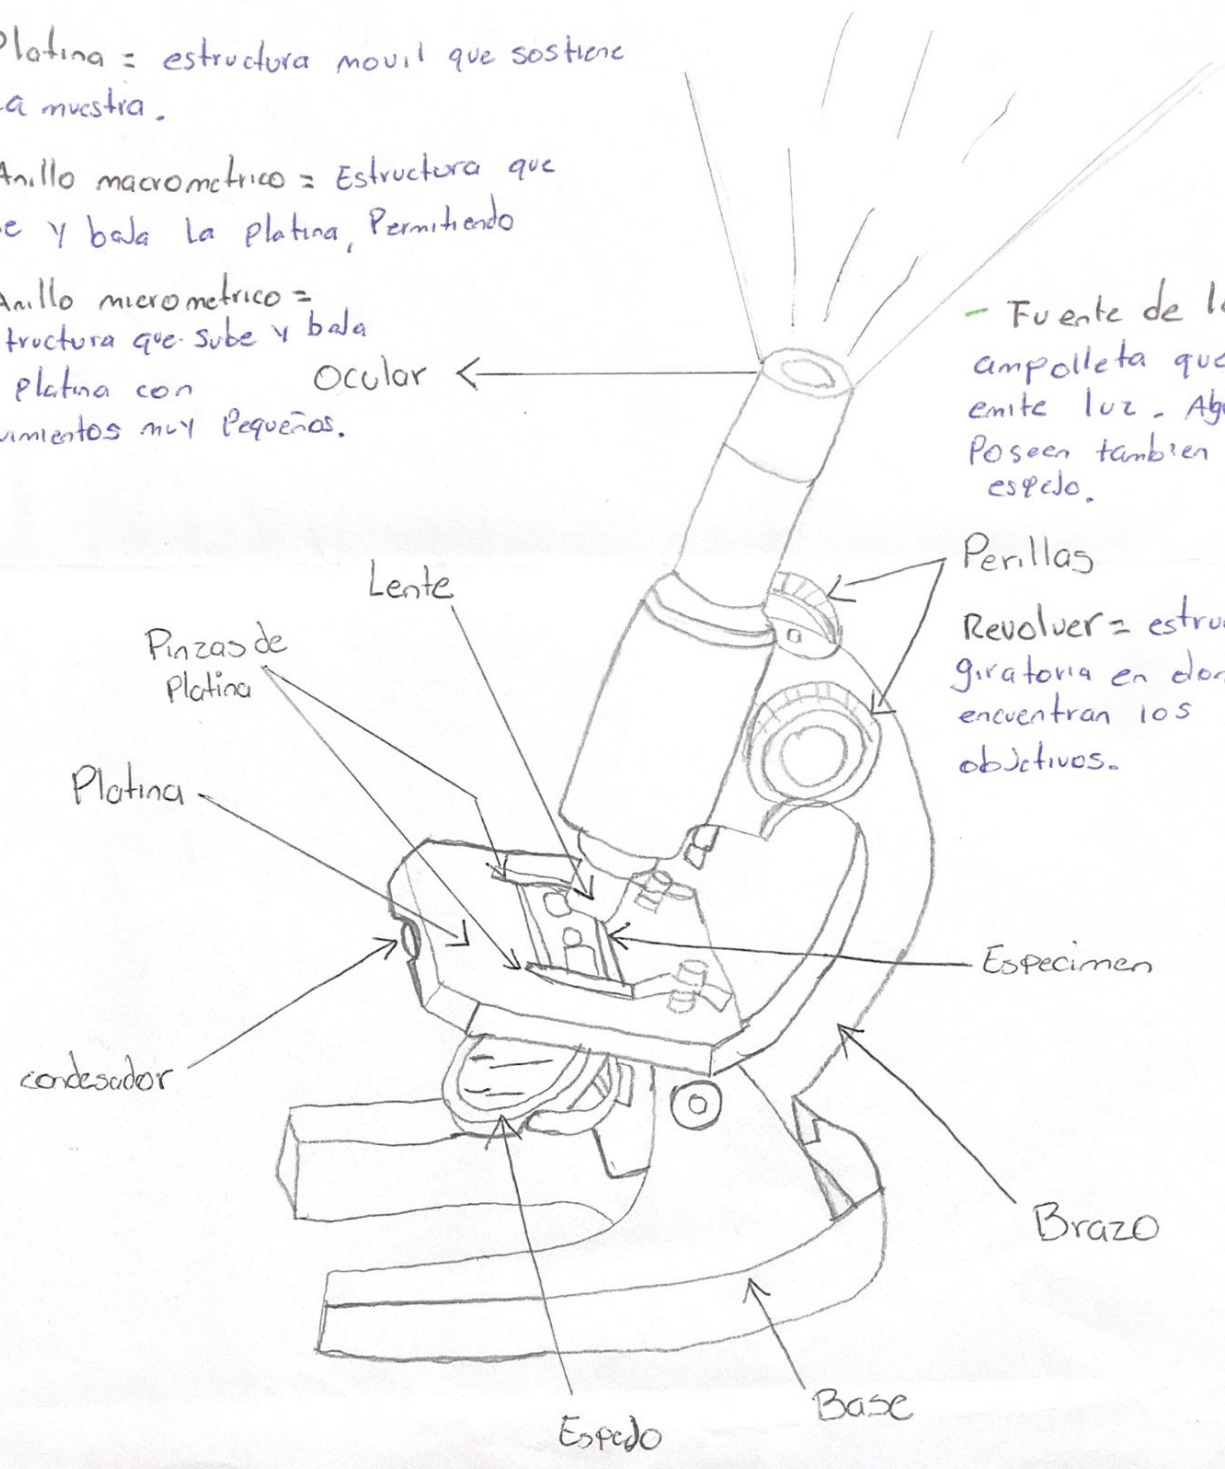 Platina = estructura movil que sostiene
La muestra.
Anillo macrometrico = Estructura que
e y baja La platina, Permitiendo
Anillo micrometrico =
tructura que sube y baja
platina con
vimientos muy Pequeños.
Ocular
- Fuente de l
ampolleta que
emite luz. Alg
Poseen tambien
espejo.
Lente
Perillas
Pinzas de
platina
Revolver = estruc
giratoria en don
encuentran los
objetivos.
Platina
Especimen
condesador
Brazo
Base
Espejo